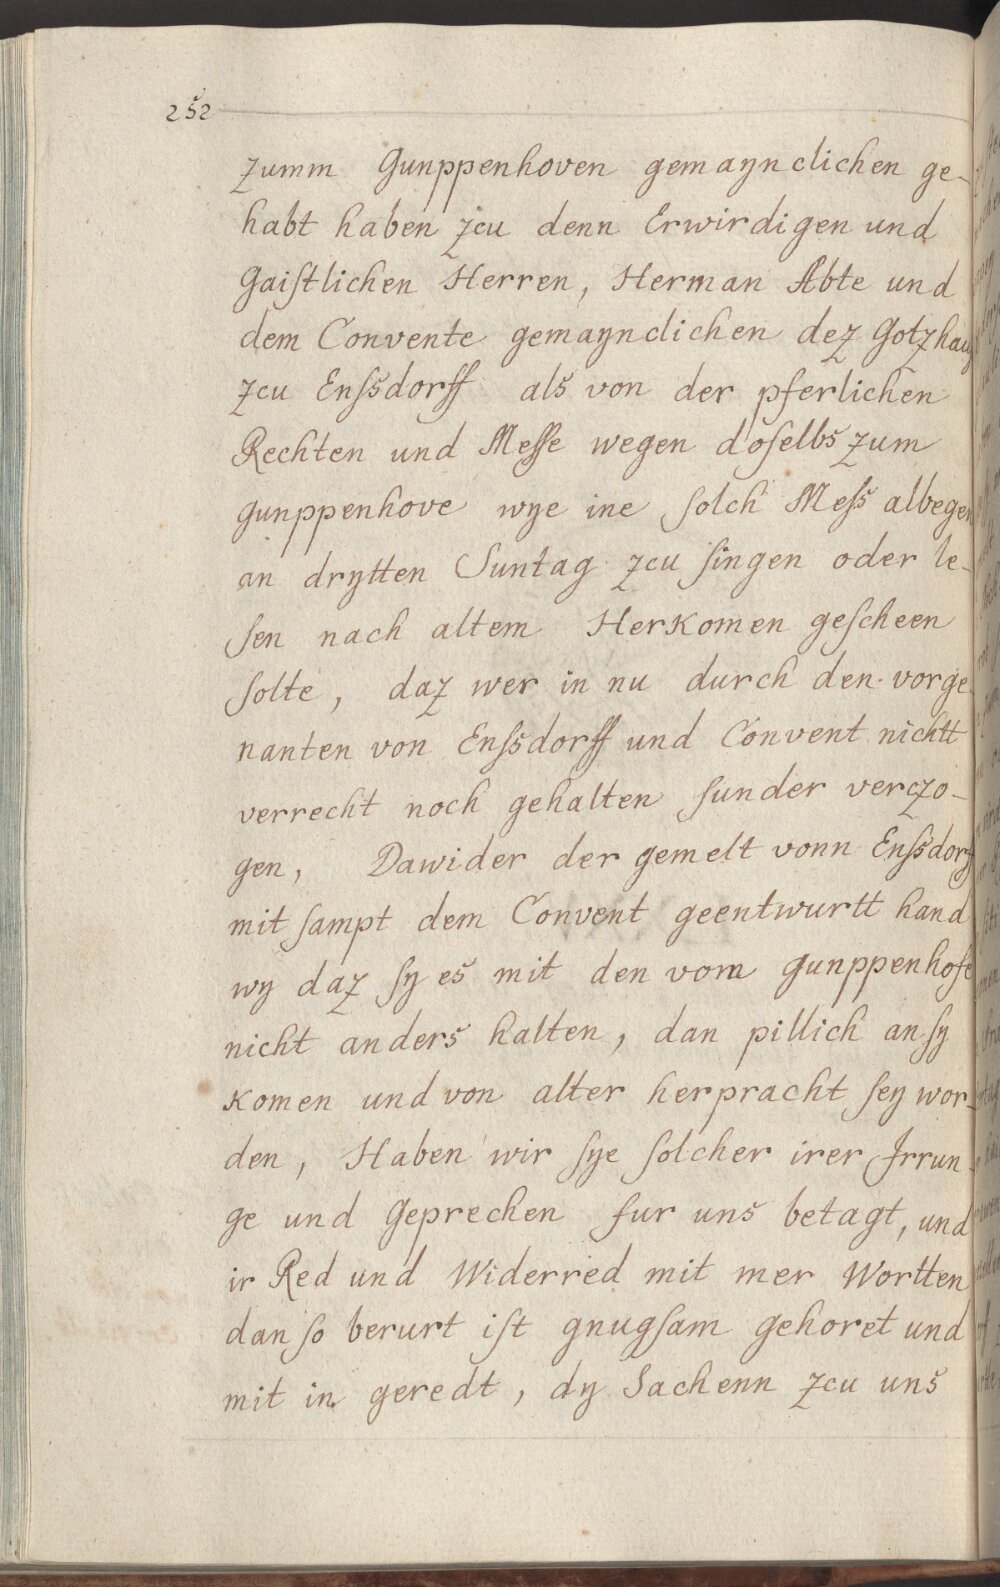 252
zumm Gunppenhoven gemaynclichen ge-
habt haben zcu denn Erwirdigen und
Gaiſtlichen Herren, Herman Abte und
dem Convente gemaynclichen dez Gotzhauz
zcu Enſsdorff als von der pferlichen
Rechten und Meſſe wegen doſelbs zum
gunppenhove wye ine ſolch Meſs albegen
an drytten Suntag zcu ſingen oder le-
ſen nach altem Herkomen geſcheen
ſolte, daz wer in nu durch den vorge-
nanten von Enſsdorff und Convent nichtt
verrecht noch gehalten ſunder verczo-
gen, Dawider der gemelt vonn Enſsdorff
mit ſampt dem Convent geentwurtt hand
wy daz ſy es mit den vom gunppenhofe
nicht anders halten, dan pillich an ſy
komen und von alter herpracht ſey wor-
den, Haben wir ſye ſolcher irer Irrun-
ge und Geprechen fur uns betagt, und
ir Red und Widerred mit mer Wortten
dan ſo berurt iſt gnugſam gehoret und
mit in geredt, dy Sachenn zcu uns